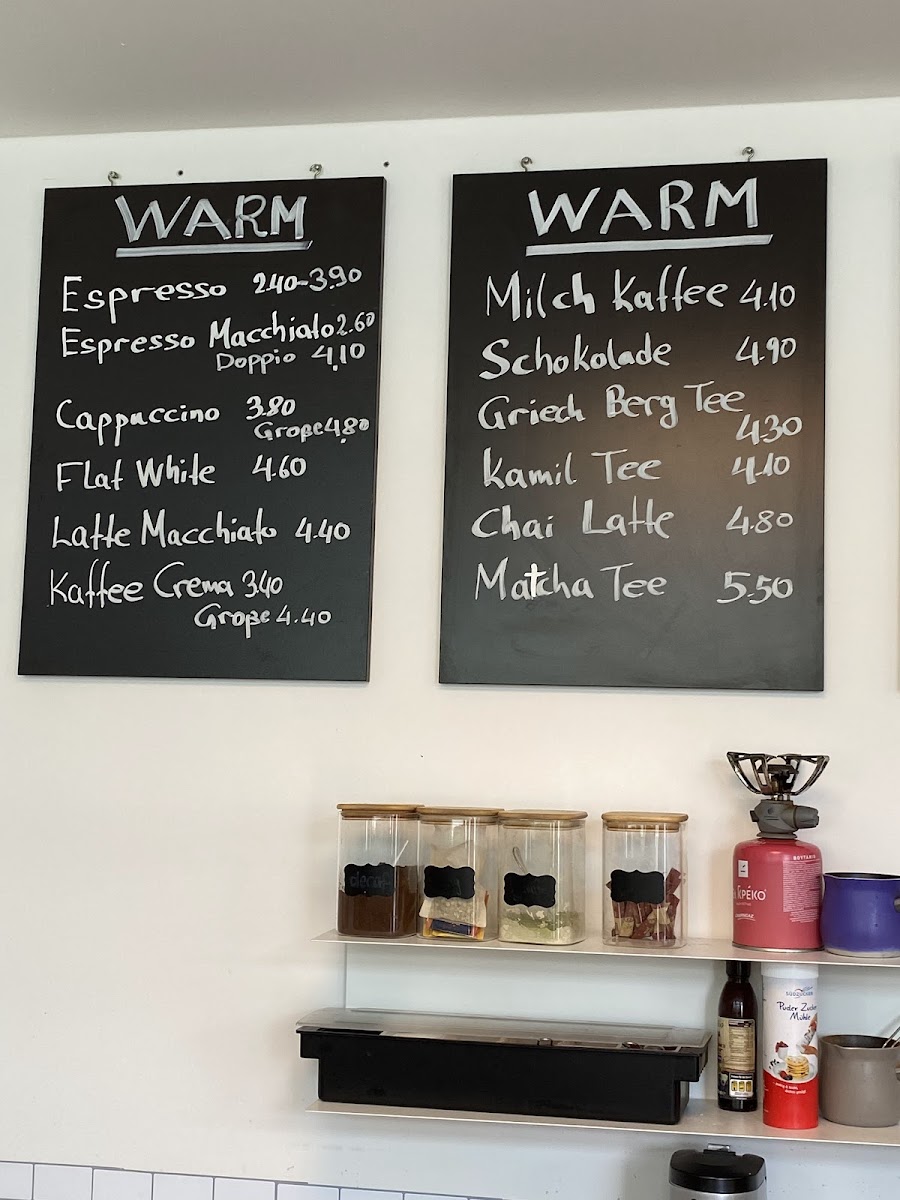 WARM
Espresso 2.40-3.90
Espresso Macchiato 2.60
Doppio 4,10
Cappuccino 3.80
Große 4.80
Flat White 4.60
Latte Macchiato 4.40
Kaffee Crema 3.40
Große 4.40
WARM
Milch Kaffee 4.10
Schokolade 4.90
Griech Berg Tee
4.30
Kamil Tee 4.10
Chai Latte 4.80
Matcha Tee 5.50
decaf
ГКРÉКО
SÜDZUCKER
Puder Zucker
Mühle